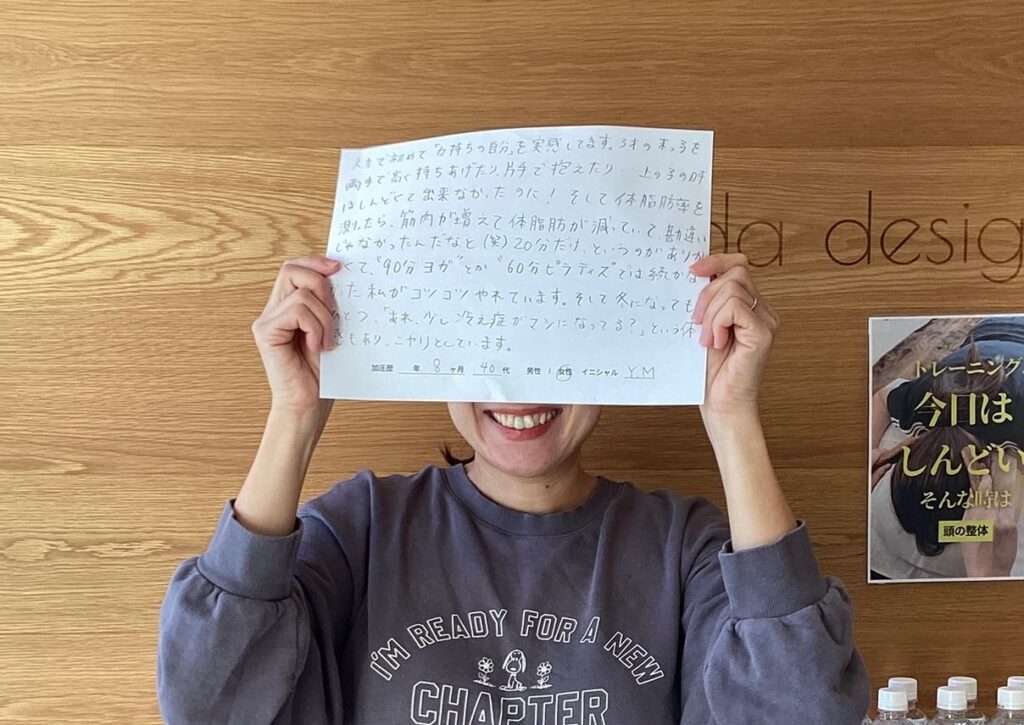 人生で初めて「力持ちの自分」を実感してます。3才の末っ子を
両手で高く持ちあげたり、片手で抱えたり… 上の子の時
はしんどくて出来なかったのに！そして体脂肪率を
測ったら、筋肉が増えて体脂肪が減っていて、勘違い
じゃなかったんだなと(笑) 20分だけ、というのがありが
くて、"90分ヨガ"とか"60分ピラティス"では続かな
った私がコツコツやれています。そして冬になっても
ひとつ、「あれ、少し冷え症がマシになってる？」という体
感もあり、ニヤリとしています。
加圧歴 年 8 ヶ月 40 代 男性 / 女性 イニシャル Y.M
da desig
トレーニング
今日は
しんどい
そんな時は
頭の整体
I'M READY FOR A NEW
CHAPTER